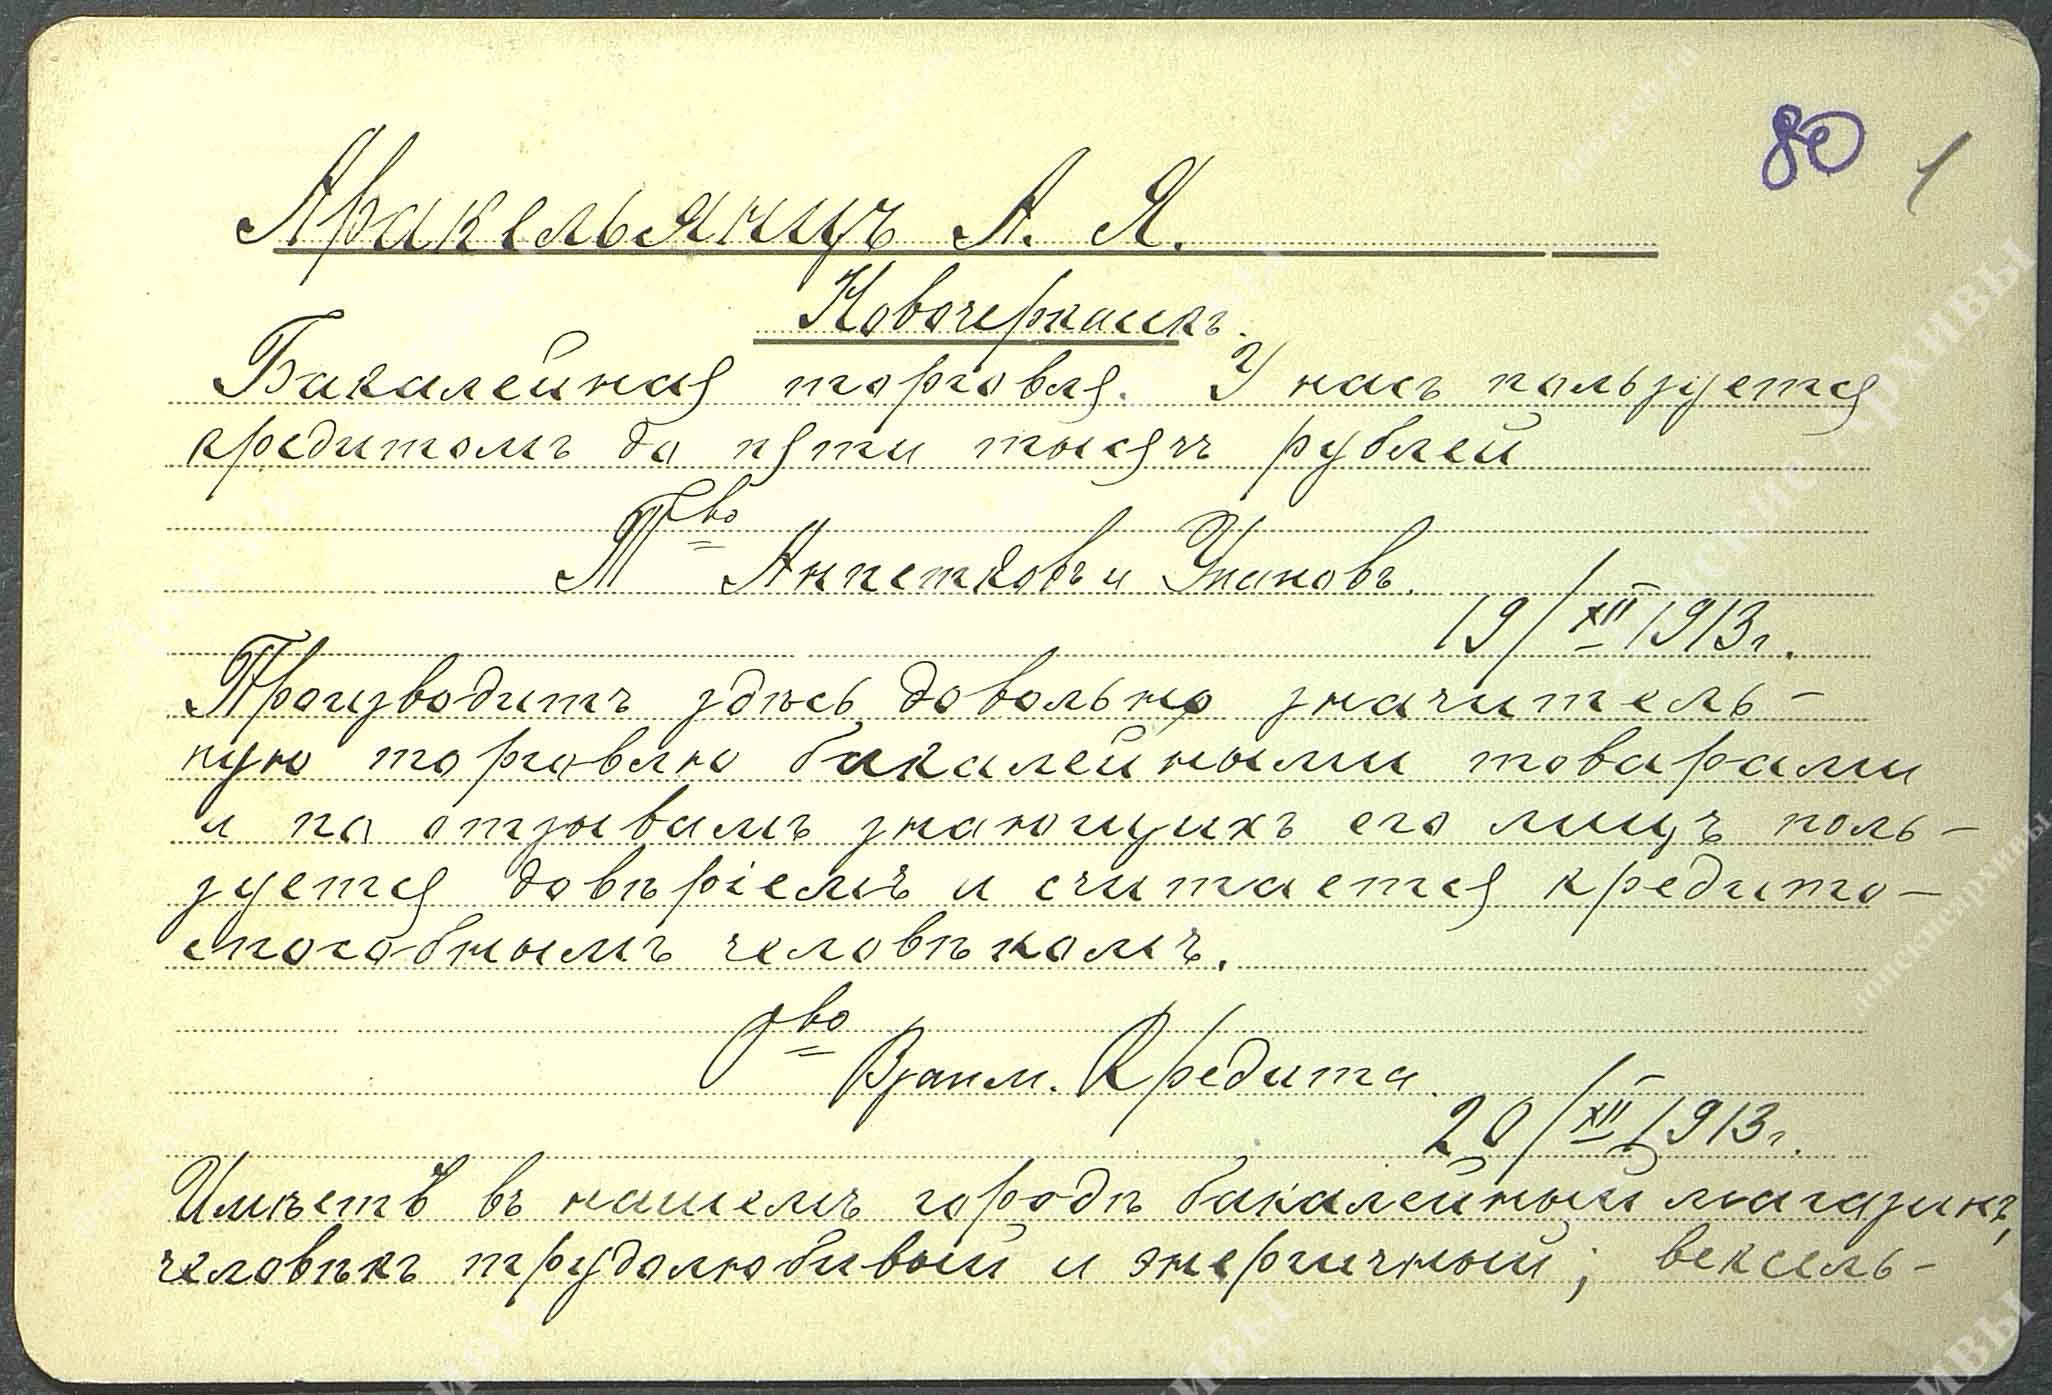 80 1
Аракельянцъ А. Я.
Новочеркаскъ.
Бакалейная торговля. У насъ пользуется
кредитомъ до пяти тысячъ рублей
Т-во и
19/XII 1913 г.
Производитъ здѣсь довольно значитель-
ную торговлю бакалейными товарами
и по отзывамъ знающихъ его лицъ поль-
зуется довѣріемъ и считается кредито-
способнымъ человѣкомъ.
О-во
Взаим. Кредита
20/XII 1913 г.
Имѣетъ въ нашемъ городѣ бакалейный магазинъ,
человѣкъ трудолюбивый и энергичный; вексель-